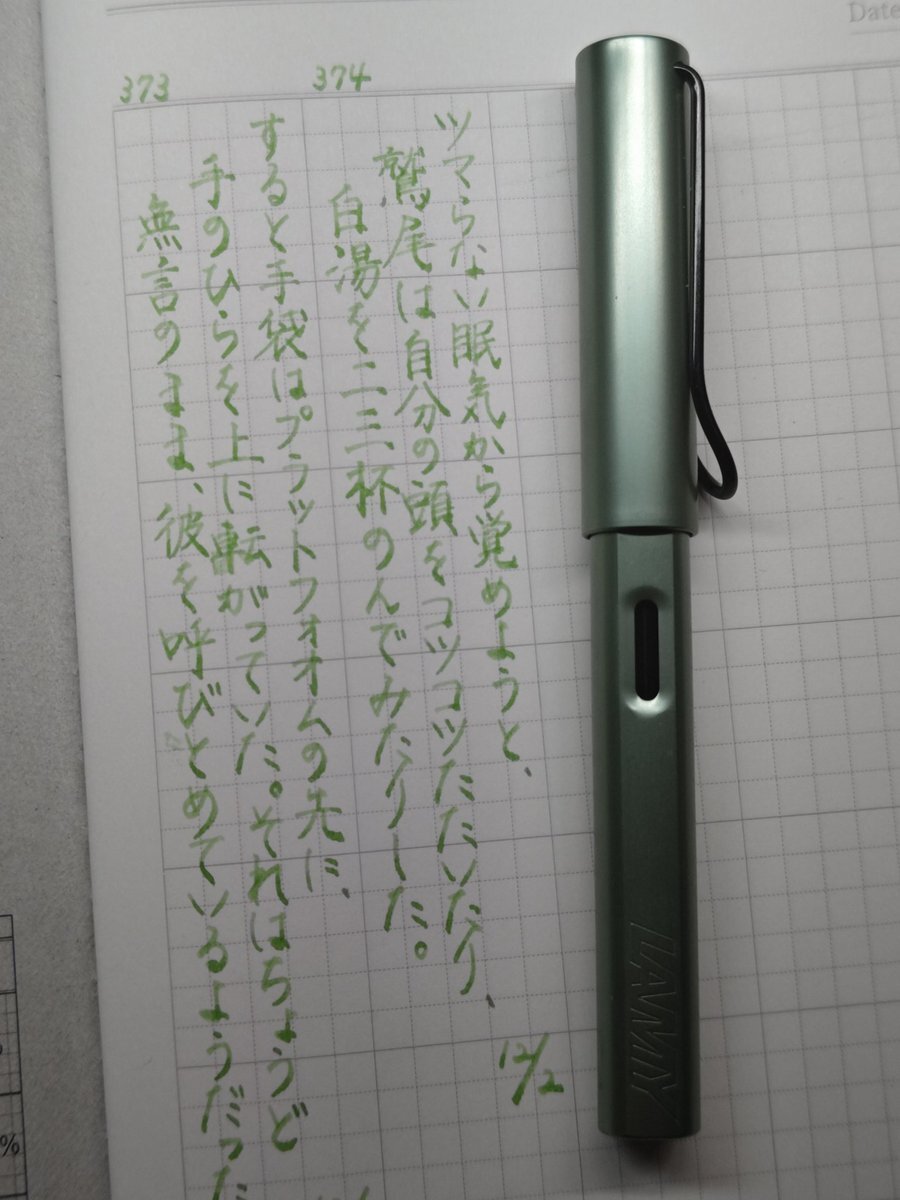 Date
374
ツマらない眠気から覚めようと、
鷲尾は自分の頭をコツコツたたいたり、
白湯を二三杯のんでみたりした。
12/2
373
すると手袋はプラットフォオムの先に、
手のひらを上に転がっていた。それはちょうど
無言のまま、彼を呼びとめているようだった
LAMY
%